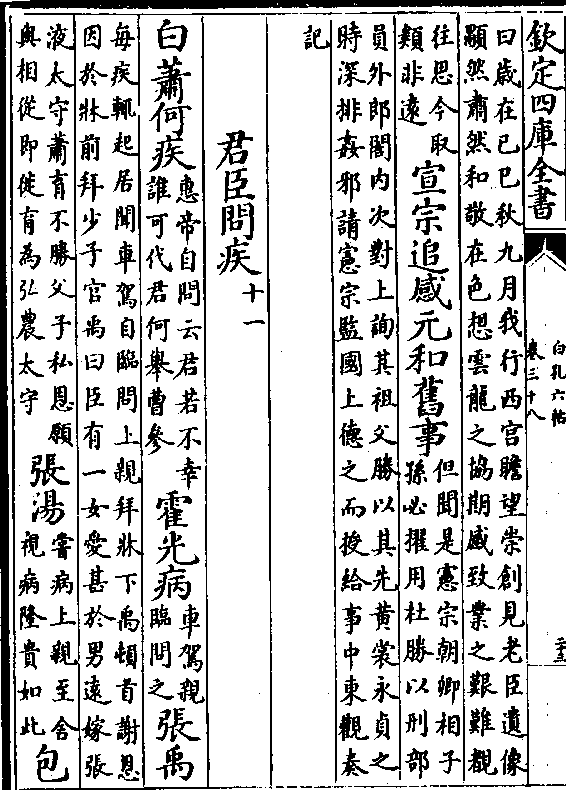 欽定四庫全書
白孔六帖
卷三十八
曰歳在已巳秋九月我行西宫瞻望崇創見老臣遺像
顒然肅然和敬在色想雲龍之協期感致業之艱難覩
往思今取
類非遠
宣宗追感元和舊事
但聞是憲宗朝卿相子
孫必擢用杜勝以刑部
員外郎閣内次對上詢其祖父勝以其先黄裳永貞之
時深排姦邪請憲宗監國上德之而授給事中東觀奏
記
君臣問疾十一
白蕭何疾
惠帝自問云君若不幸
誰可代君何舉曹參
霍光病
車駕親
臨問之
張禹
每疾輒起居聞車駕自臨問上親拜牀下禹頓首謝恩
因於牀前拜少子官禹曰臣有一女愛甚於男遠嫁張
液太守蕭育不勝父子私恩願
與相從即徙育為弘農太守
張湯
嘗病上親至舍
視病隆貴如此
包